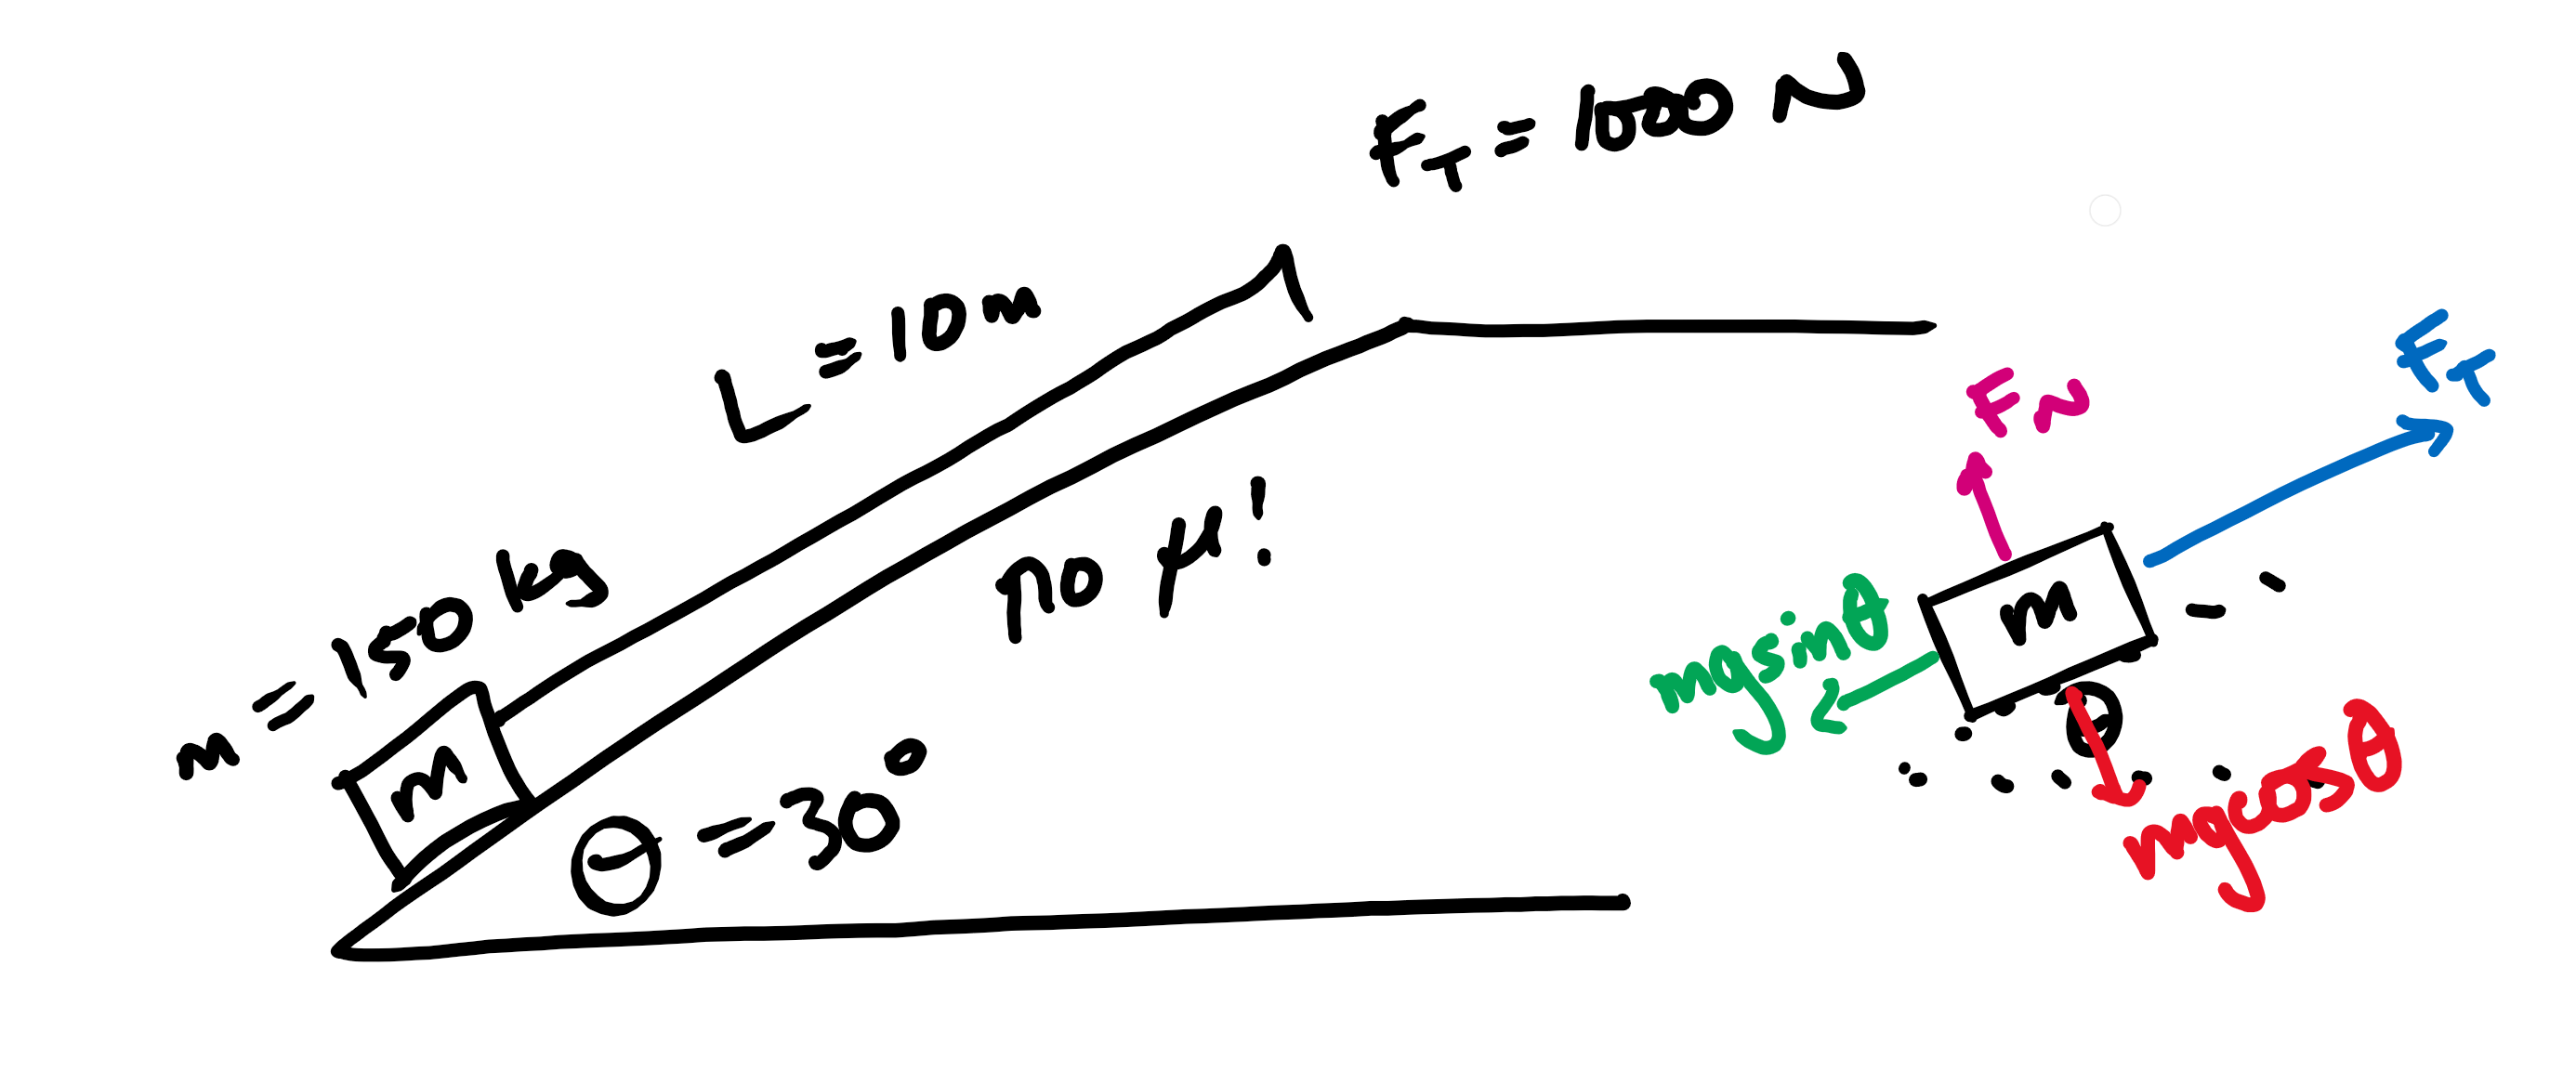 F_T = 1000 N
L = 10 m
m = 150 kg
m
θ = 30°
no μ!
F_N
F_T
m
mgsinθ
θ
mgcosθ